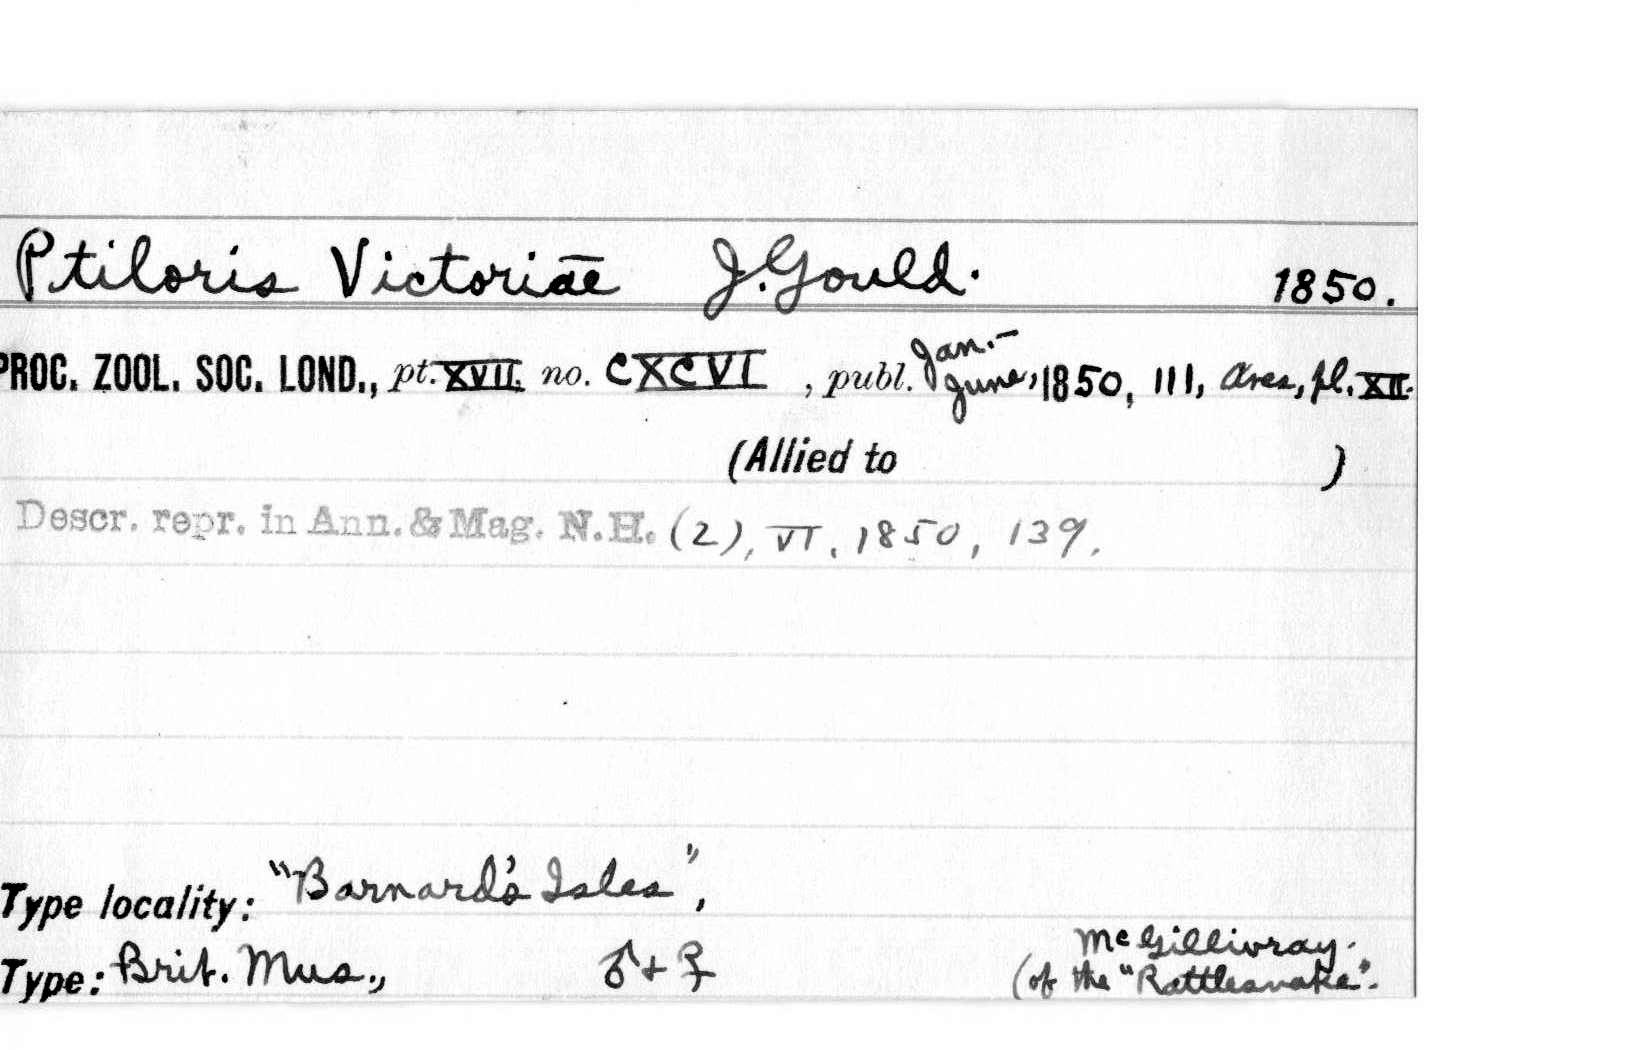 Ptiloris Victoriae J. Gould. 1850.
PROC. ZOOL. SOC. LOND., pt. XVII, no. CXCVI, publ. Jan.-June, 1850, 111, Aves, pl. XII.
(Allied to )
Descr. repr. in Ann. & Mag. N.H. (2), VI, 1850, 139.
Type locality: "Barnard's Isles",
Type: Brit. Mus., ♂ + ♀ McGillivray.
(of the "Rattlesnake".